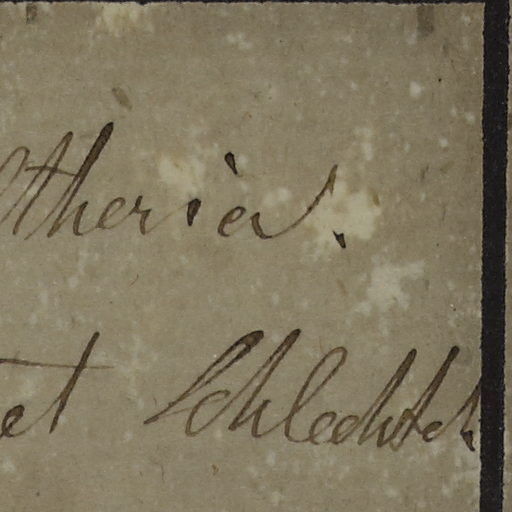 ltheria.
et Schlechtd.